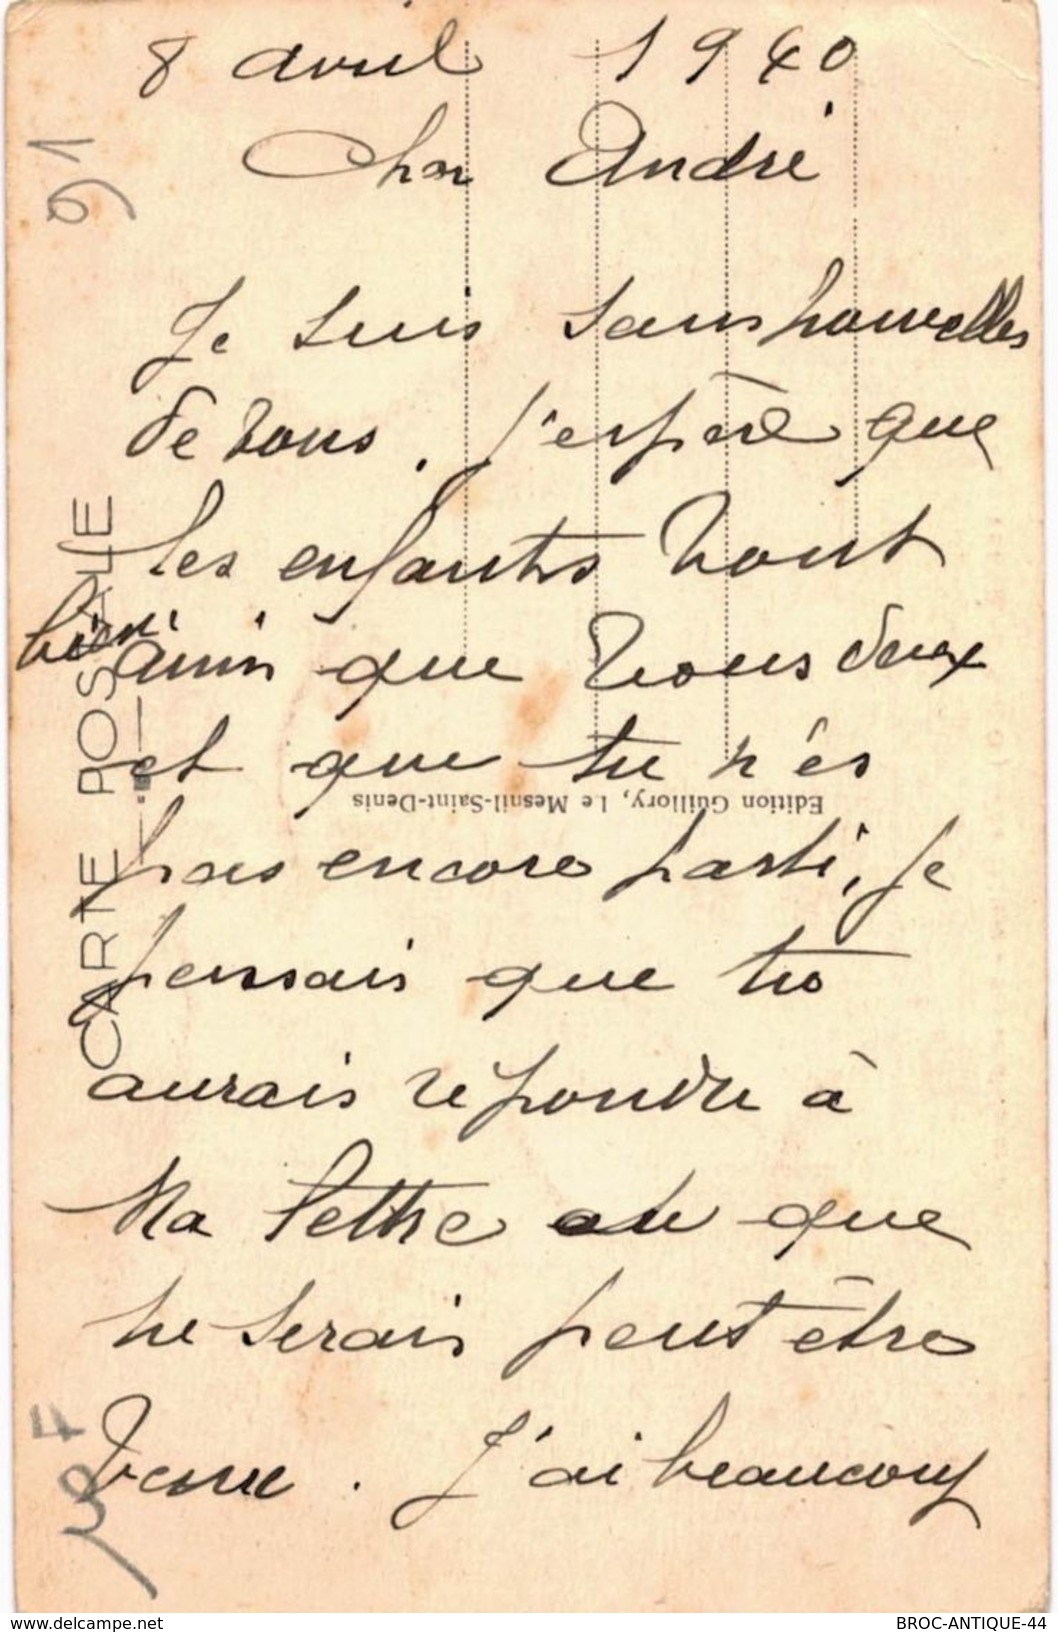 8 avril 1940
Cher André
Je suis sans nouvelles
de vous. j'espère que
les enfants vont
bien ainsi que vous deux
et que tu n'es
pas encore parti, je
pensais que tu
aurais répondu à
Ma lettre ou que
tu serais peut être
venu. J'ai beaucoup
CARTE POSTALE
Edition Guillory, Le Mesnil-Saint-Denis
91
www.delcampe.net
BROC-ANTIQUE-44